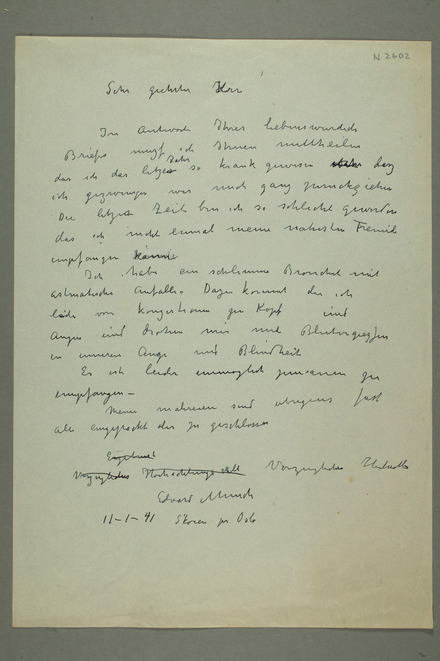 N 2602
Sehr geehrter Herr
Im Antwort Ihres liebenswurdich
Briefes muss ich Ihnen mittheilen
das ich das letzte Jahr so krank gewesen das
ich gezwungen war mich ganz zurückziehen
Die letzte Zeit bin ich so schlecht geworden
das ich nicht einmal meine nahesten Freunde
empfangen könne
Ich habe ein schlimme Bronchit mit
astmatische Anfalle. Dazu kommt das ich
leide von Kongestionen zu Kopf und
Augen und drohen mir mit Blutergüssen
in inneren Auge und Blindheit
Es ist leider unmöglich jemanden zu
empfangen –
Meine sind ubrigens fast
alle eingepackt oder zu geschlossen
Ergebenst
Vorzugliches Hochachtungsvoll Vorzugliches
Edvard Munch
11-1-41 Skøien pr Oslo